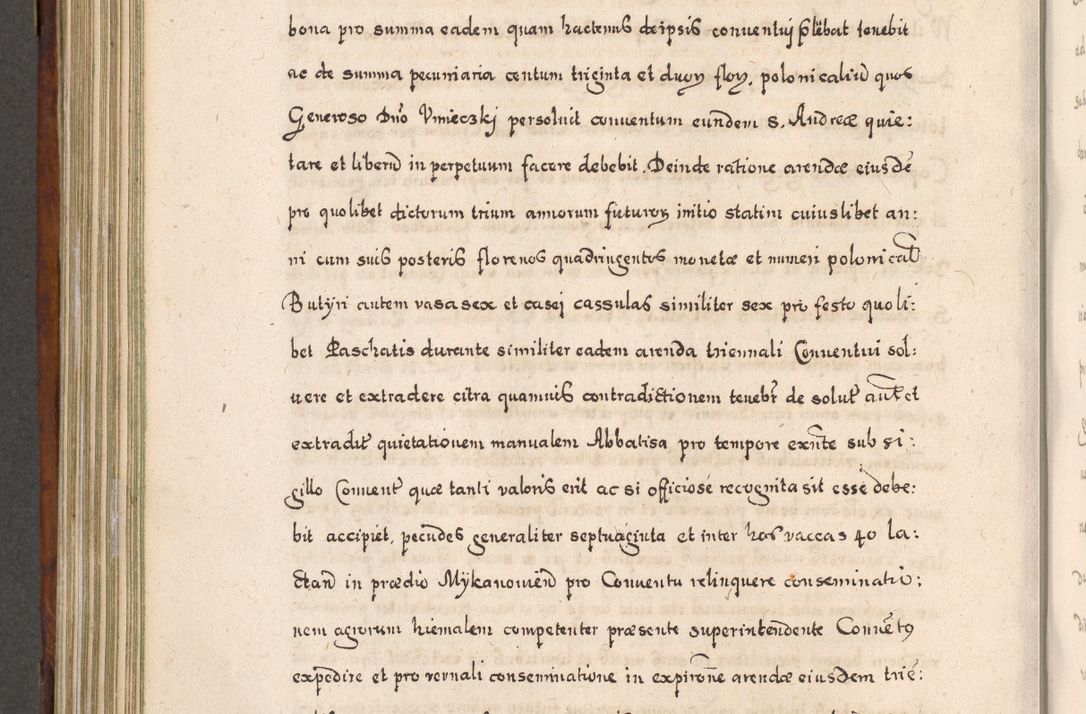 bona pro summa eadem quam hactenus de ipsis conventuj tenebit
ac de summa pecuniaria centum triginta et duoꝝ floꝝ. polonicaliũ quos
Generoso Dño Vnieczkj persoluit conuentum eundem S. Andreæ quie:
tare et liberũ in perpetuum facere debebit. Deinde ratione arendæ eiusdẽ
pro quolibet dictorum trium annorum futuroꝝ initio statim cuiuslibet an:
ni cum suis posteris florenos quadringentos monetæ et numeri polonical̃
Butÿri autem vasa sex et casej cassulas similiter sex pro festo quoli:
bet Paschatis durante similiter eadem arenda triennali Conuentui sol:
uere et extradere citra quamuis contradictionem teneb̃r de solut̃ aut̃ et
extradit̃ quietationem manualem Abbatisa pro tempore exñte sub si:
gillo Conuent̃ quæ tanti valoris erit ac si officiose recognita sit esse debe:
bit accipiet, pecudes generaliter septuaginta et inter has vaccas 40 la:
ctañ in prædio Mÿkanowieñ pro Conuentu relinquere conseminatio:
nem agrorum hiemalem competenter præsente superintendente Conuẽtꝰ
expedire et pro vernali conseminatione in expirõne arendæ eiusdem triẽ: